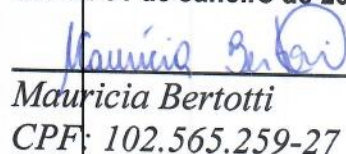 de Janeiro de 20
Mauricia Bertotti
Mauricia Bertotti
CPF: 102.565.259-27